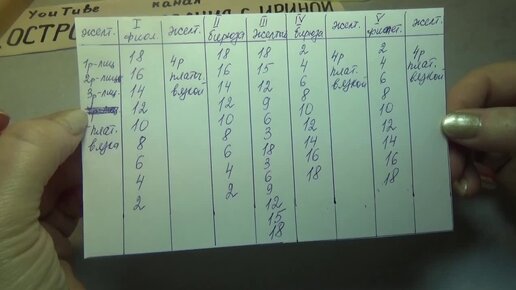 YouTube канал
ОСТРО С ИРИНОЙ
I II III IV V
жёлт. фиол. жёлт. бирюза жёлтый бирюза жёлт. фиолет. жёлт.
18 18 18 2 2
1р-лиц 16 4р 16 15 4 4р 4 4р
2р-лиц 14 плат. 14 12 6 плат. 6 плат.
3р-лиц. 12 вязкой 12 9 8 вязкой 8 вязкой
10 10 6 10 10
плат. 8 8 3 12 12
вязка 6 6 18 14 14
4 4 3 16 16
2 2 6 18 18
9
12
15
18